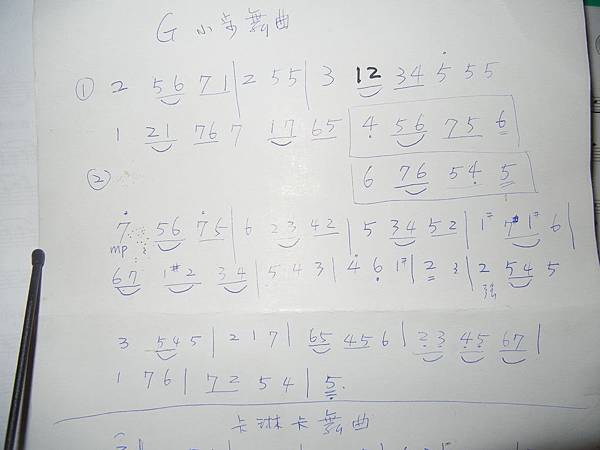 G 小步舞曲
① 2 56 71 | 2 55 | 3 12 34 5 55
1 21 76 7 17 65 4 56 75 6
② 6 76 54 5
7 56 75 | 6 23 42 | 5 34 52 | 1# 7# 1# 6 |
mp
67 1#2 34 | 5 4 3 | 4 6 1# | 2 3 | 2 54 5
强
3 54 5 | 2 1 7 | 65 45 6 | 23 45 67 |
1 76 | 72 54 | 5.
卡琳卡舞曲